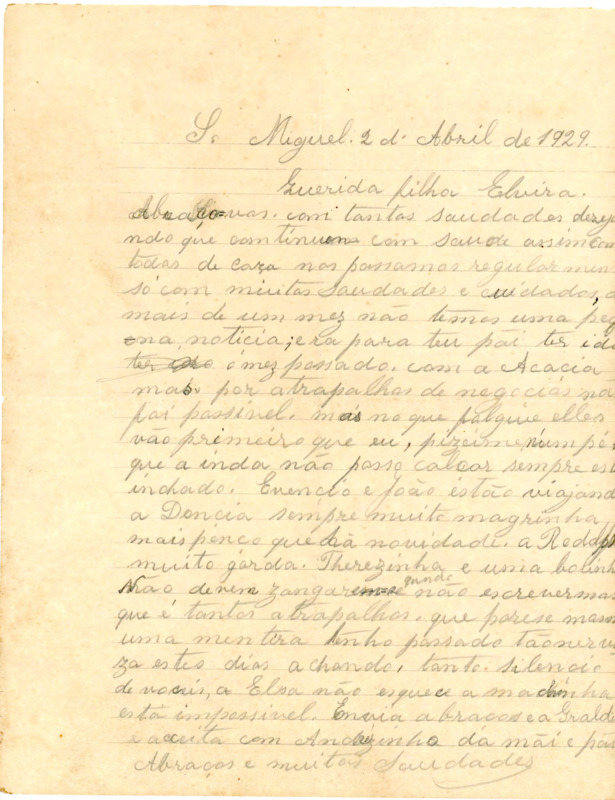 S. Miguel. 2 d. Abril de 1929.
Querida filha Elvira.
com tantas saudades deseja
ndo que continuem com saude assim com
todos de caza nos passamos regularmen
só com muitas saudades e cuidados, a
mais de um mez não têmos uma peq
na noticia; era para teu pai ter ido
ó mez passado. com a Acacia
mas por atrapalhos de negocias na
foi passivel. mas no que falguive elles
vão primeiro que eu, pizeime num pé,
que a inda não posso calcar sempre est
inchado. Evencio e João estão viajand
a Doncia sempre muito magrinha,
mais penço que há novidade. a Rodolph
muito gorda. Therezinha e uma bolinh
Não devem zangar quando não escrevermas
que é tantos atrapalhos. que parese mesm
uma mentira tenho passado tão nervo
za estes dias achando, tanto. silencio
de voceis, a Elsa não esquece a madinha
está impossivel. Envia abraços e a Gralda
e aceita com Andrezinho da mãi e pai
Abraços e muitas Saudades